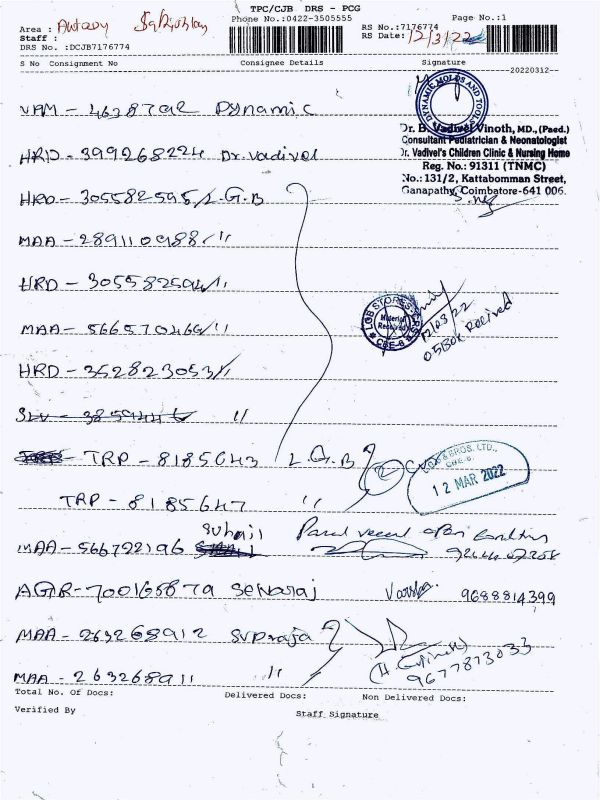 TPC/CJB DRS - PCG
Area : Phone No.:0422-3505555 RS No.:7176774 Page No.:1
Staff : RS Date: 12/3/22
DRS No. :DCJB7176774
S No Consignment No Consignee Details Signature
20220312--
DYNAMIC MOLDS AND TOOLS
VPM - Dynamic
Dr. B. Vadivel Vinoth, MD., (Paed.)
Consultant Pediatrician & Neonatologist
Dr. Vadivel's Children Clinic & Nursing Home
Reg. No.: 91311 (TNMC)
No.: 131/2, Kattabomman Street,
Ganapathy, Coimbatore-641 006.
HRD - 399268224 Dr. Vadivel
HRD - 305582595/ L.G.B
MAA - 289110988/ "
HRD - 305582594/ "
LGB STORES
Material
Received
CBE-6
12/03/22
05 Box Recived
MAA - 566570464/ "
HRD - 352823053/ "
"
TRP - 8185643 L.G.B
& BROS. LTD.,
CBE-6.
12 MAR 2022
TRP - 8185647 "
Suhail
MAA - 566722196
AGR - 700165879 Selvaraj 9688814399
MAA - 263268912 Supraja
9677873033
MAA - 263268911 "
Total No. Of Docs: Delivered Docs: Non Delivered Docs:
Verified By Staff Signature